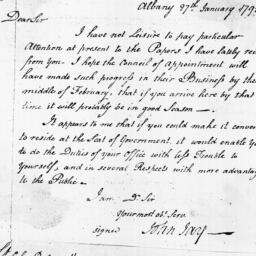 Albany 27th January 179
Dear Sir
I have not Leisure to pay particular
Attention at present to the Papers I have lately rec
from you. I hope the Council of appointment will
have made such progress in their Business by the
middle of February, that if you arrive here by that
time it will probably be in good Season —
It appears to me that if you could make it conven
to reside at the Seat of Government, it would enable yo
to do the Duties of your Office with less Trouble to
yourself, and in several Respects with more advantag
to the Public —
I am Dr Sir
Your most obt Servt
signed John Jay